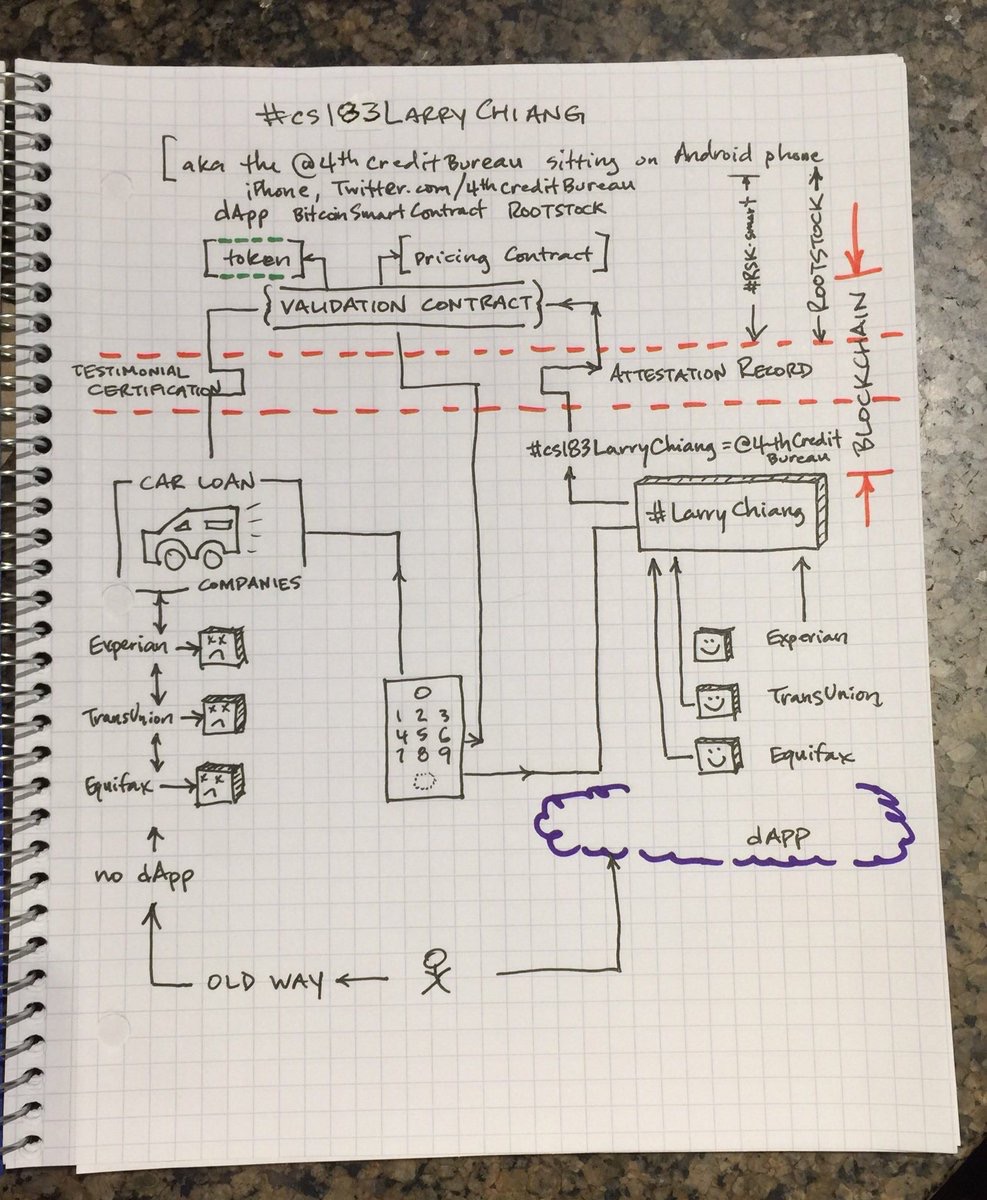 #cs183LARRYCHIANG
[aka the @4thcreditBureau sitting on Android phone
iPhone, Twitter.com/4thcreditBureau
dApp BitcoinSmartContract ROOTSTOCK
[token]
[Pricing Contract]
{VALIDATION CONTRACT}
#RSK-smart
ROOTSTOCK
BLOCKCHAIN
TESTIMONIAL
CERTIFICATION
ATTESTATION RECORD
#cs183LarryChiang = @4-thCredit
Bureau
CAR LOAN
#LarryChiang
COMPANIES
Experian
TransUnion
Equifax
0
1 2 3
4 5 6
7 8 9
Experian
TransUnion
Equifax
dAPP
no dApp
OLD WAY